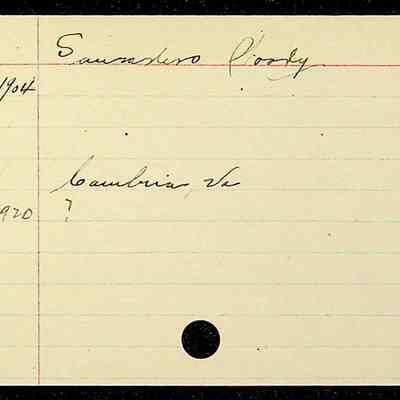 Saunders Ploody
1904
Cambria, Va
1920 ?